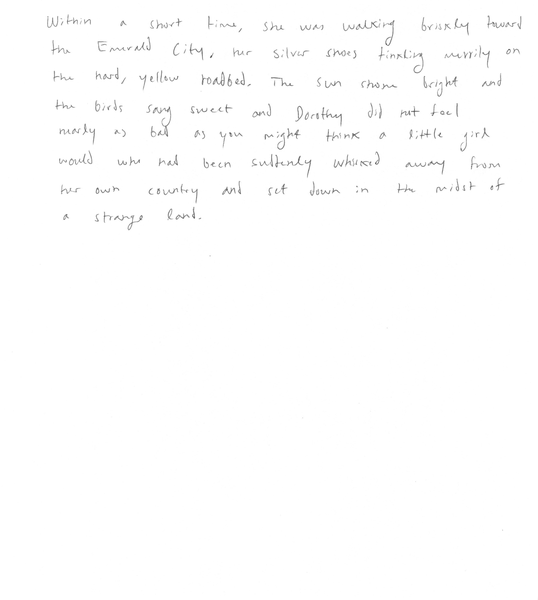 Within a short time, she was walking briskly toward
the Emerald City, her silver shoes tinkling merrily on
the hard, yellow roadbed. The sun shone bright and
the birds sang sweet and Dorothy did not feel
nearly as bad as you might think a little girl
would who had been suddenly whisked away from
her own country and set down in the midst of
a strange land.